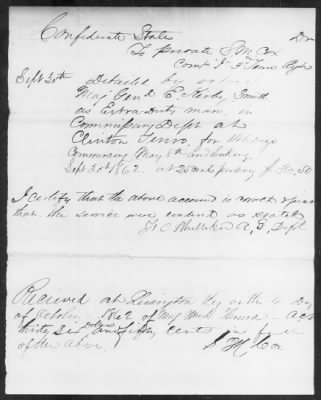 Confederate States Dr
To Private S M Cox
Comp I 3rd Tenn Regt
Sept 30th Detailed by order
Maj Gen'l E Kirby Smith
as Extra Duty man in
Commissary Dept at
Clinton Tenn. for 146 days
Commencing May 8th and Ending
Sept 30th 1862 at 25 cents per day $ 36,50
I certify that the above account is correct &
that the service were rendered as stated
A, Dept
Received at Lexington Ky on the 4 Day
of October 1862 of Maj
thirty Six Dolls and fifty cents in full
of the above,
S M Cox